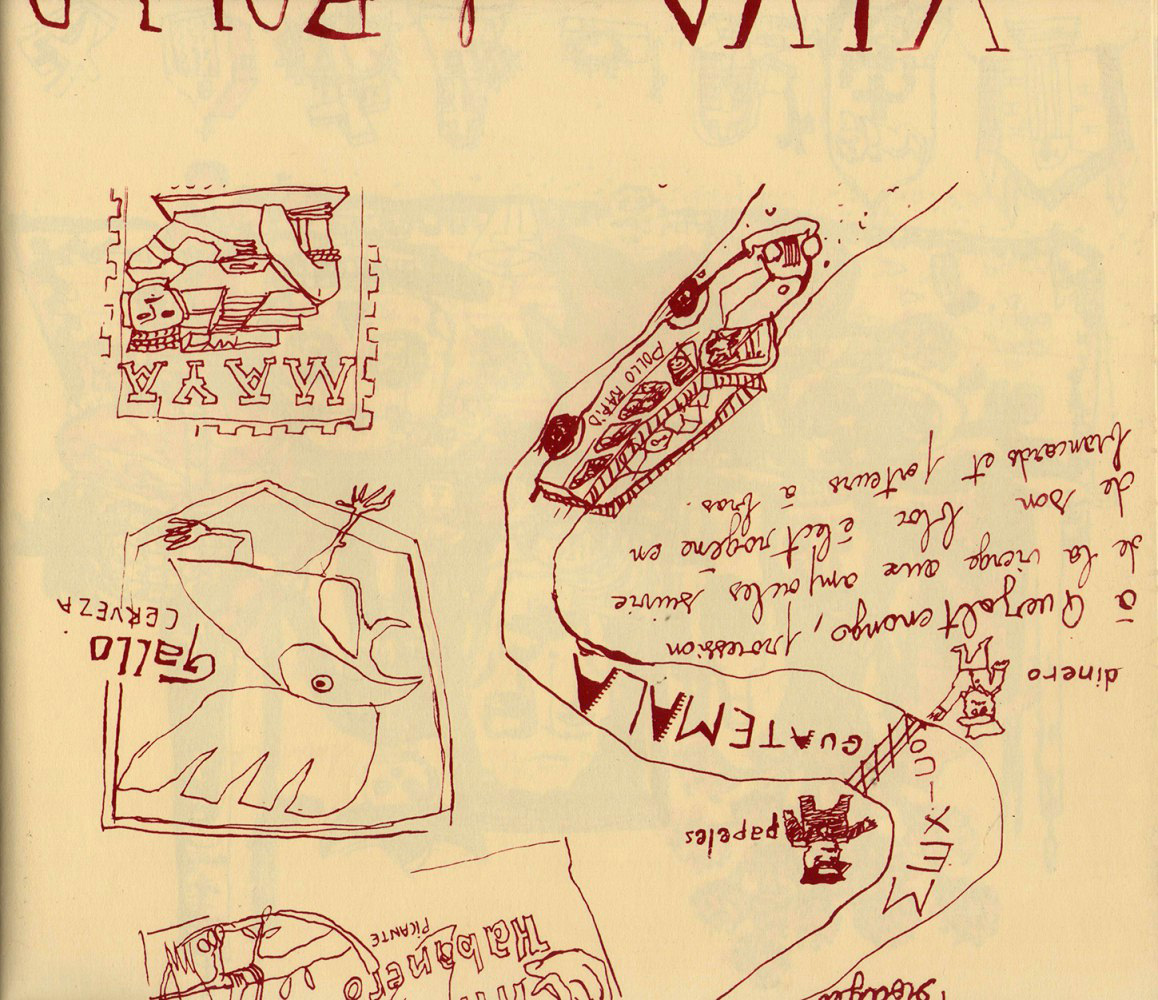 Habanero
PiCANTE
MEXICO
papeles
dinero
GUATEMALA
à Quezaltenango, procession
de la vierge aux ampoules suivie
de son bloc électrogène en
brancards et porteurs à bras.
gallo
CERVEZA
POLLO RAPID
MAYA
VIVA